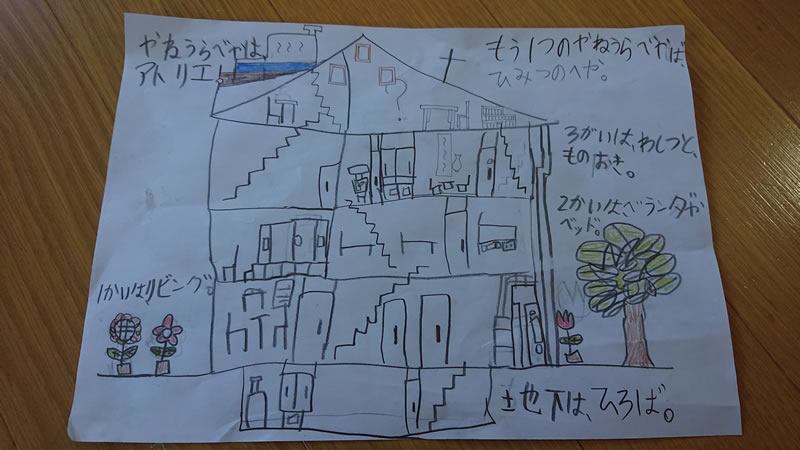 やねうらべやは、
アトリエ。
もう1つのやねうらべやは、
ひみつのへや。
3かいは、わしつと、
ものおき。
2かいは、ベランダが
ベッド。
1かいはリビング。
地下は、ひろば。